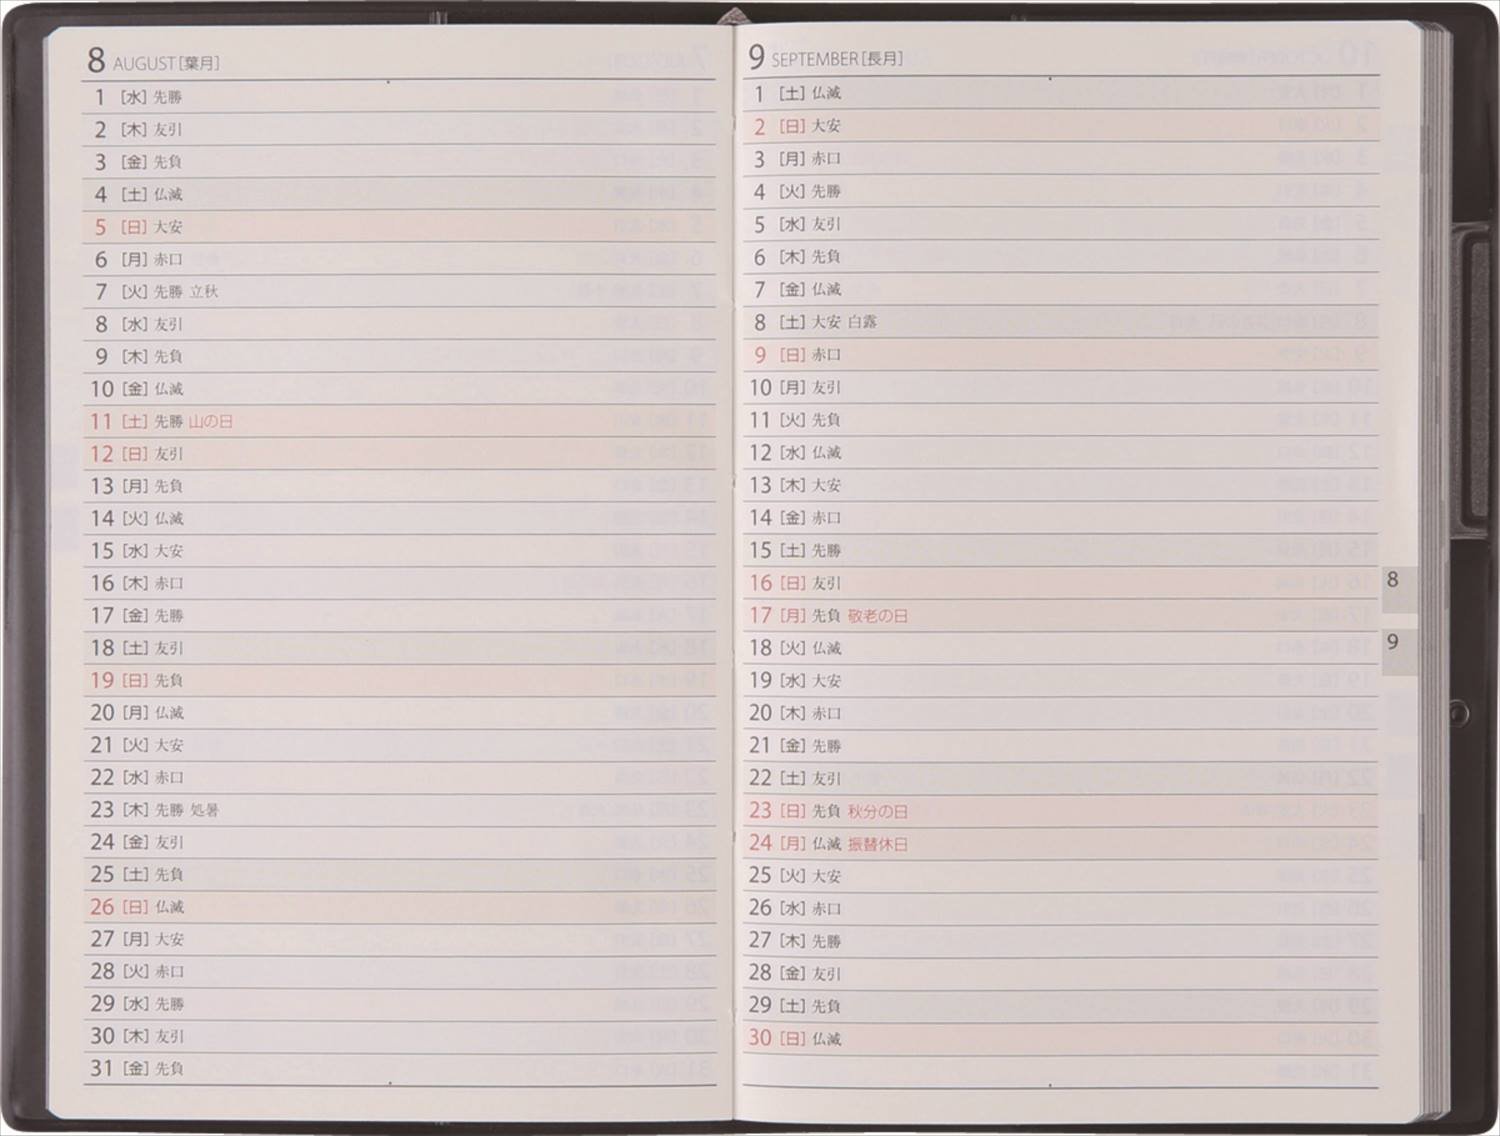 8 AUGUST[葉月]
1 [水] 先勝
2 [木] 友引
3 [金] 先負
4 [土] 仏滅
5 [日] 大安
6 [月] 赤口
7 [火] 先勝 立秋
8 [水] 友引
9 [木] 先負
10 [金] 仏滅
11 [土] 先勝 山の日
12 [日] 友引
13 [月] 先負
14 [火] 仏滅
15 [水] 大安
16 [木] 赤口
17 [金] 先勝
18 [土] 友引
19 [日] 先負
20 [月] 仏滅
21 [火] 大安
22 [水] 赤口
23 [木] 先勝 処暑
24 [金] 友引
25 [土] 先負
26 [日] 仏滅
27 [月] 大安
28 [火] 赤口
29 [水] 先勝
30 [木] 友引
31 [金] 先負
9 SEPTEMBER[長月]
1 [土] 仏滅
2 [日] 大安
3 [月] 赤口
4 [火] 先勝
5 [水] 友引
6 [木] 先負
7 [金] 仏滅
8 [土] 大安 白露
9 [日] 赤口
10 [月] 友引
11 [火] 先負
12 [水] 仏滅
13 [木] 大安
14 [金] 赤口
15 [土] 先勝
16 [日] 友引
17 [月] 先負 敬老の日
18 [火] 仏滅
19 [水] 大安
20 [木] 赤口
21 [金] 先勝
22 [土] 友引
23 [日] 先負 秋分の日
24 [月] 仏滅 振替休日
25 [火] 大安
26 [水] 赤口
27 [木] 先勝
28 [金] 友引
29 [土] 先負
30 [日] 仏滅
8
9